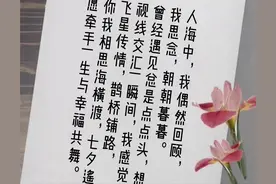 人海中，我偶然回顾，
我思念，朝朝暮暮。
曾经遇见总是点点头，想
视线交汇一瞬间，我感觉
飞星传情，鹊桥铺路，
你我相思海横渡，七夕遙
愿牵手一生与幸福共舞。